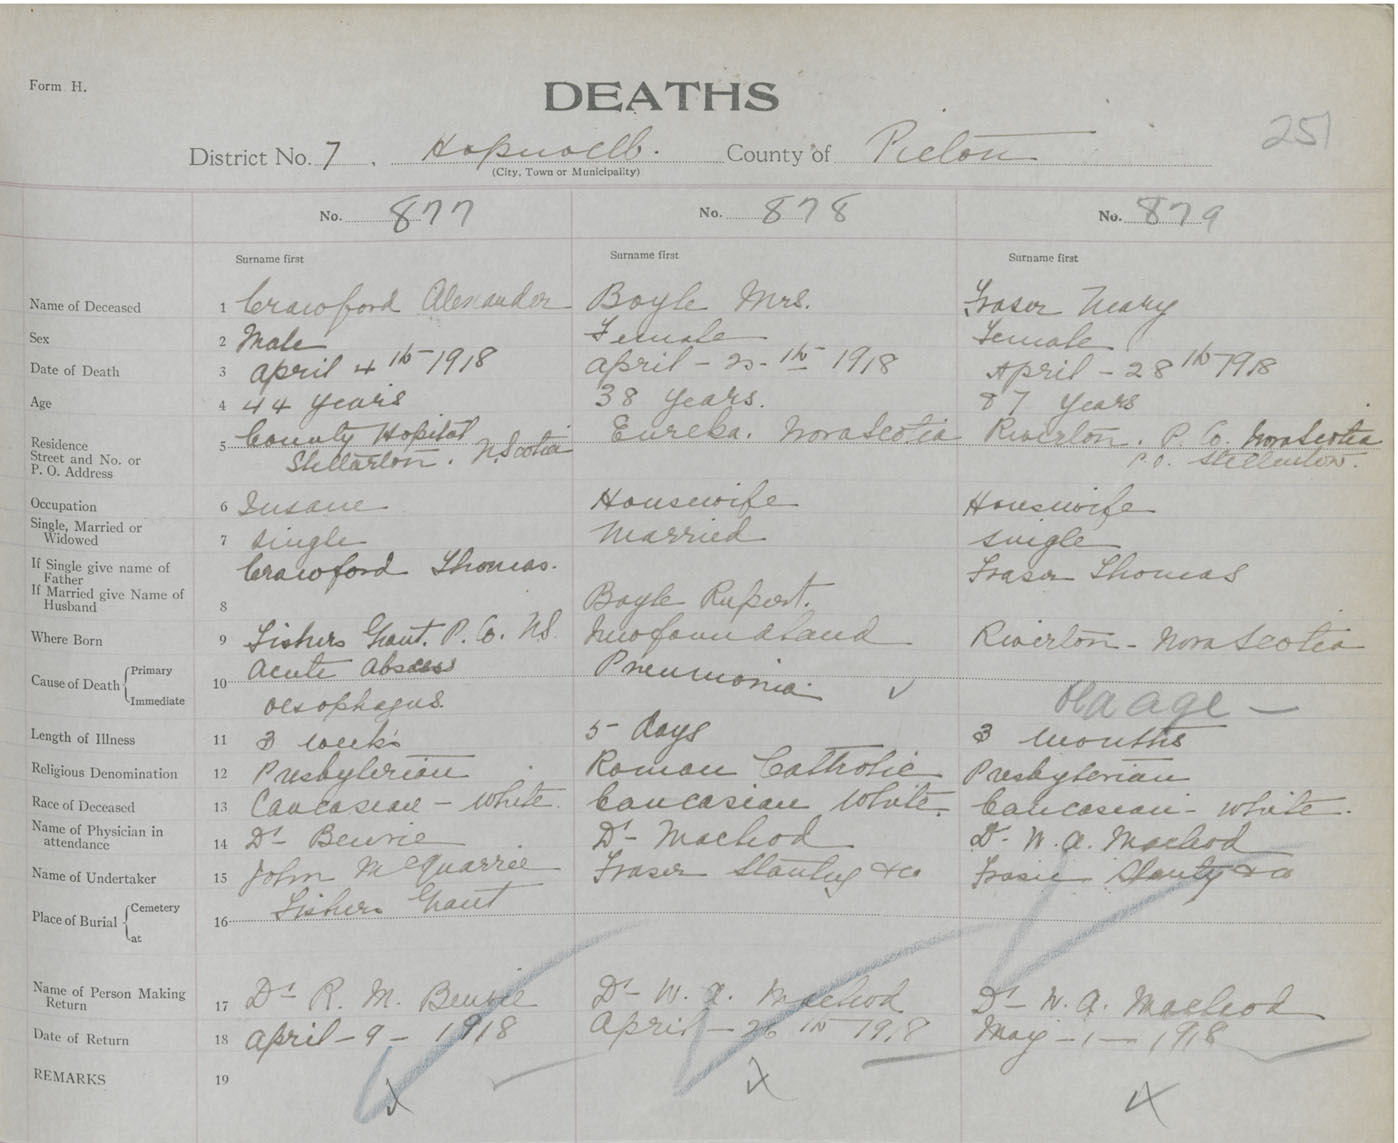 Form H.
DEATHS
251
District No. 7, Hopwell. County of Pictou
(City, Town or Municipality)
No. 877 No. 878 No. 879
Surname first Surname first Surname first
Name of Deceased 1 Crawford Alexander Boyle Mrs. Fraser Mary
Sex 2 Male Female Female
Date of Death 3 April 4th 1918 April - 25th 1918 April - 28th 1918
Age 4 44 years 38 years. 87 years
Residence
Street and No. or
P. O. Address
5 County Hopital Eureka. Nova Scotia Riverton. P. Co. Nova Scotia
Stellarton. N. Scotia P.O. Stellarton.
Occupation 6 Insane Housewife Housewife
Single, Married or
Widowed
7 Single Married Single
If Single give name of
Father
Crawford Thomas. Fraser Thomas
If Married give Name of
Husband
8 Boyle Rupert.
Where Born 9 Fishers Grant. P. Co. NS. Newfoundland Riverton - Nova Scotia
Cause of Death Primary
Immediate
10 Acute Abscess Pneumonia
oesophagus. Old age —
Length of Illness 11 3 weeks 5 days 3 months
Religious Denomination 12 Presbyterian Roman Catholic Presbyterian
Race of Deceased 13 Caucasian - White. Caucasian White. Caucasian - White.
Name of Physician in
attendance
14 Dr Benvie Dr - Macleod Dr W. A. Macleod
Name of Undertaker 15 John McQuarrie Fraser Stanley & Co Fraser & Co
Place of Burial Cemetery
at
16 Fishers Grant
Name of Person Making
Return
17 Dr R. M. Benvie Dr - W. A. Macleod Dr - W. A. Macleod
Date of Return 18 April - 9 - 1918 April - 26th 1918 May - 1 - 1918
REMARKS 19
x x x